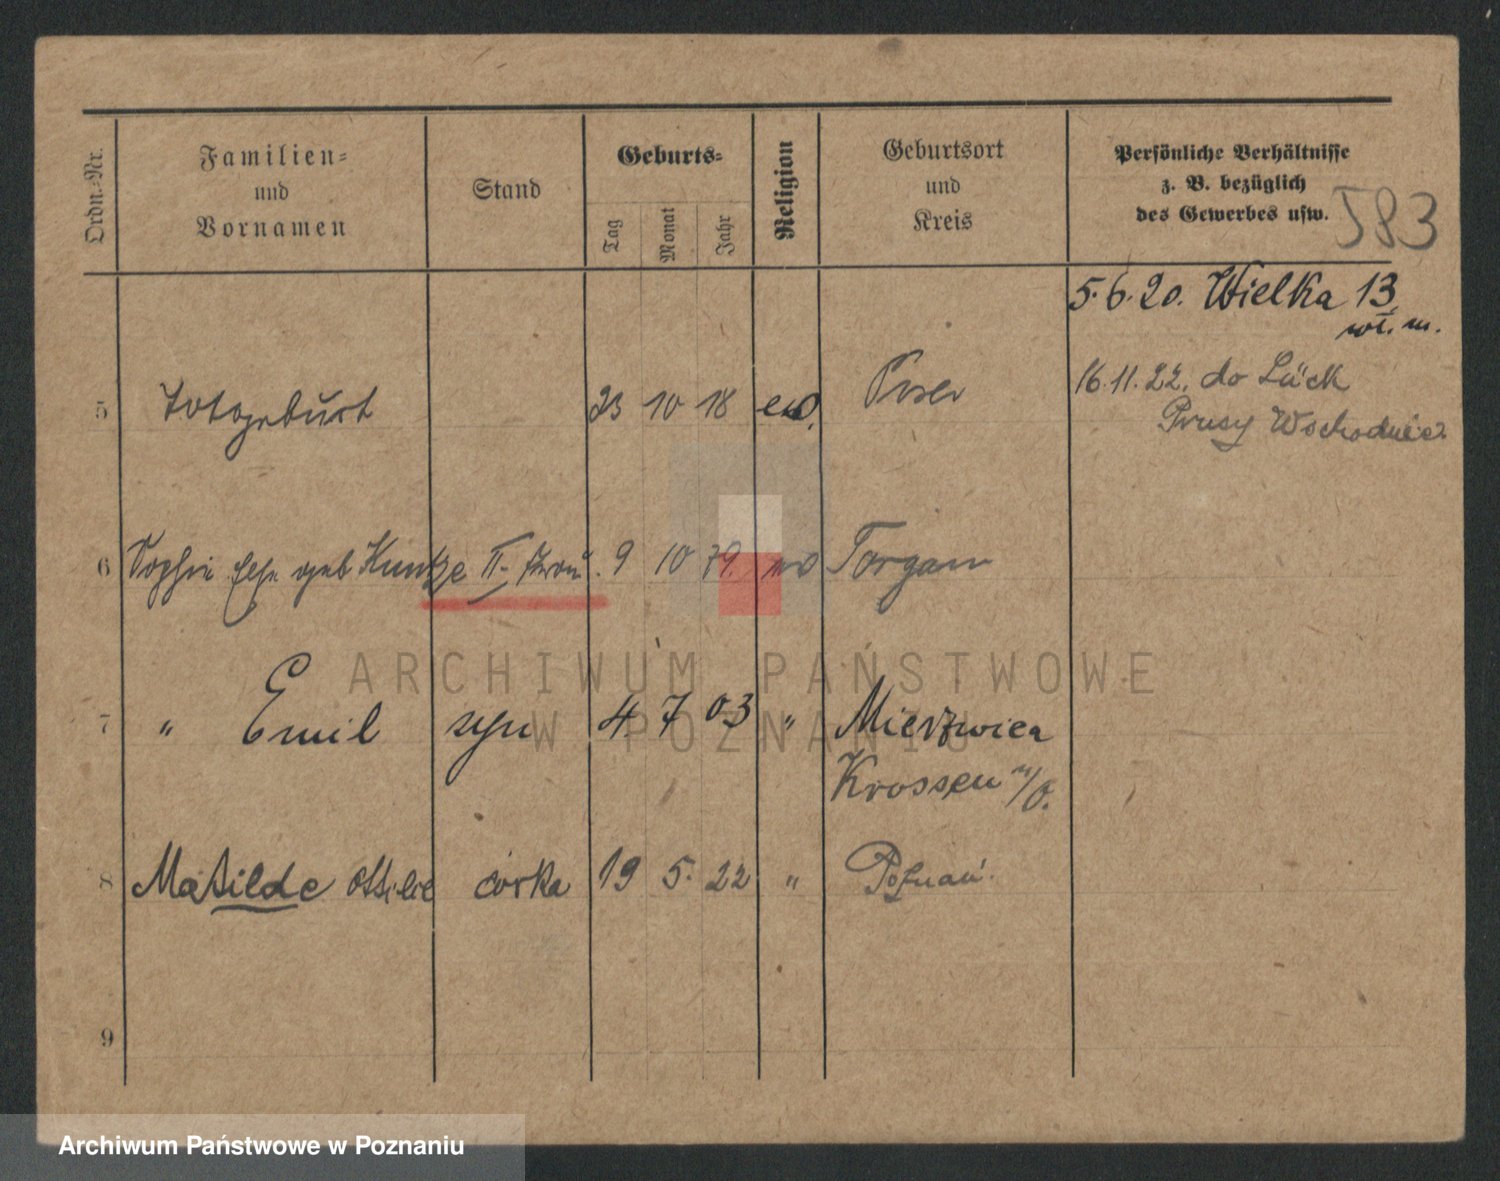 Ordn.-Nr.
Familien-
und
Vornamen
Stand
Geburts-
Tag
Monat
Jahr
Religion
Geburtsort
und
Kreis
Persönliche Verhältnisse
z. B. bezüglich
des Gewerbes usw.
583
5.6.20. Wielka 13
wł. m.
5 Totgeburt 23 10 18 ew. Posen
16.11.22. do Lück
Prusy Wschodnie
6 Sophie Else geb Kuntze II. Frau. 9 10 79. ev Torgau
7 " Emil syn 4. 7 03 " Mierzwica
Krossen a/O.
8 Matilde Ottilie córka 19 5. 22 " Poznań.
9
ARCHIWUM PAŃSTWOWE
W POZNANIU
Archiwum Państwowe w Poznaniu